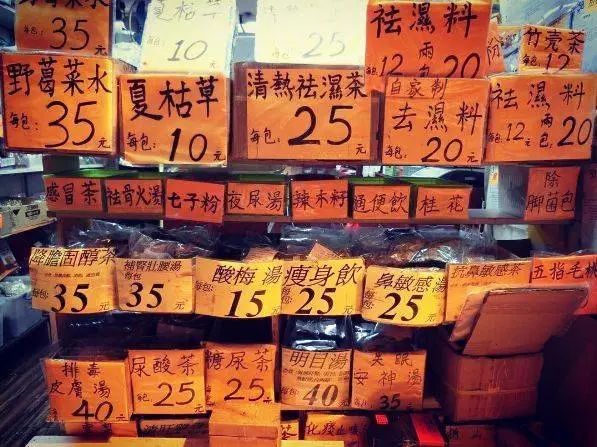 35元
夏枯草
10元
25元
祛濕料
每包12元
兩包20元
竹壳茶
12元
野葛菜水
每包:35元
夏枯草
每包:10元
清熱祛濕茶
每包:25元
自家制
去濕料
每包:20元
祛濕料
每包12元
兩包20元
感冒茶
祛骨火湯
七子粉
夜尿湯
辣木籽
通便飲
桂花
除
脚菌包
降膽固醇茶
35元
補腎壯腰湯
每包35元
酸梅湯
每包:15元
瘦身飲
每包:25元
鼻敏感湯
每包:25元
抗鼻敏感茶
五指毛桃
排毒
皮膚湯
40元
尿酸茶
每包25元
糖尿茶
每包25元
明目湯
每包
40元
失眠
安神湯
35元